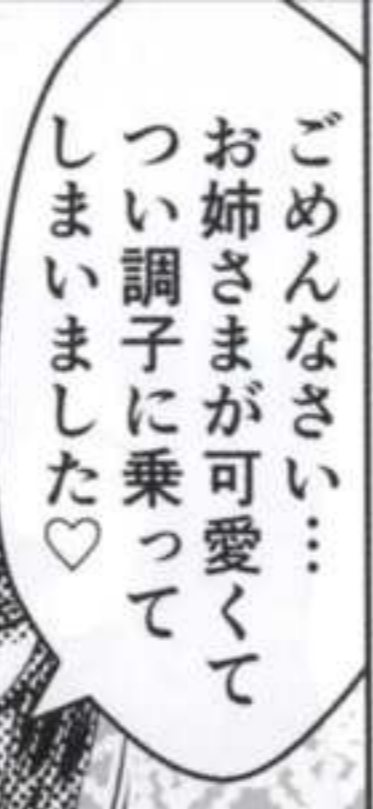 ごめんなさい…
お姉さまが可愛くて
つい調子に乗って
しまいました♡